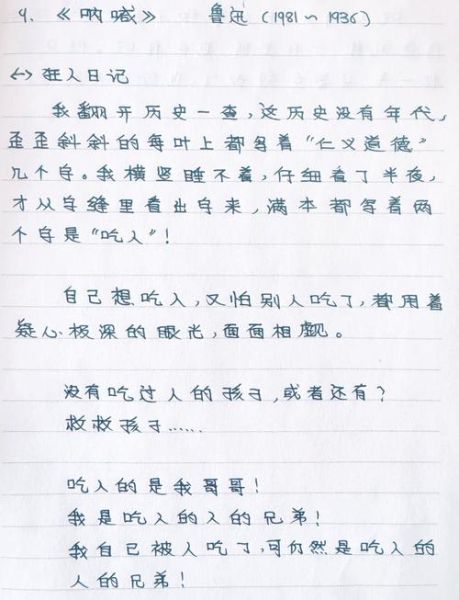 4. 《呐喊》 鲁迅 (1981~1936)
<-> 狂人日记
我翻开历史一查，这历史没有年代，
歪歪斜斜的每叶上都写着“仁义道德”
几个字。我横竖睡不着，仔细看了半夜，
才从字缝里看出字来，满本都写着两
个字是“吃人”！
自己想吃人，又怕别人吃了，都用着
疑心极深的眼光，面面相觑。
没有吃过人的孩子，或者还有？
救救孩子……
吃人的是我哥哥！
我是吃人的人的兄弟！
我自己被人吃了，可仍然是吃人的
人的兄弟！